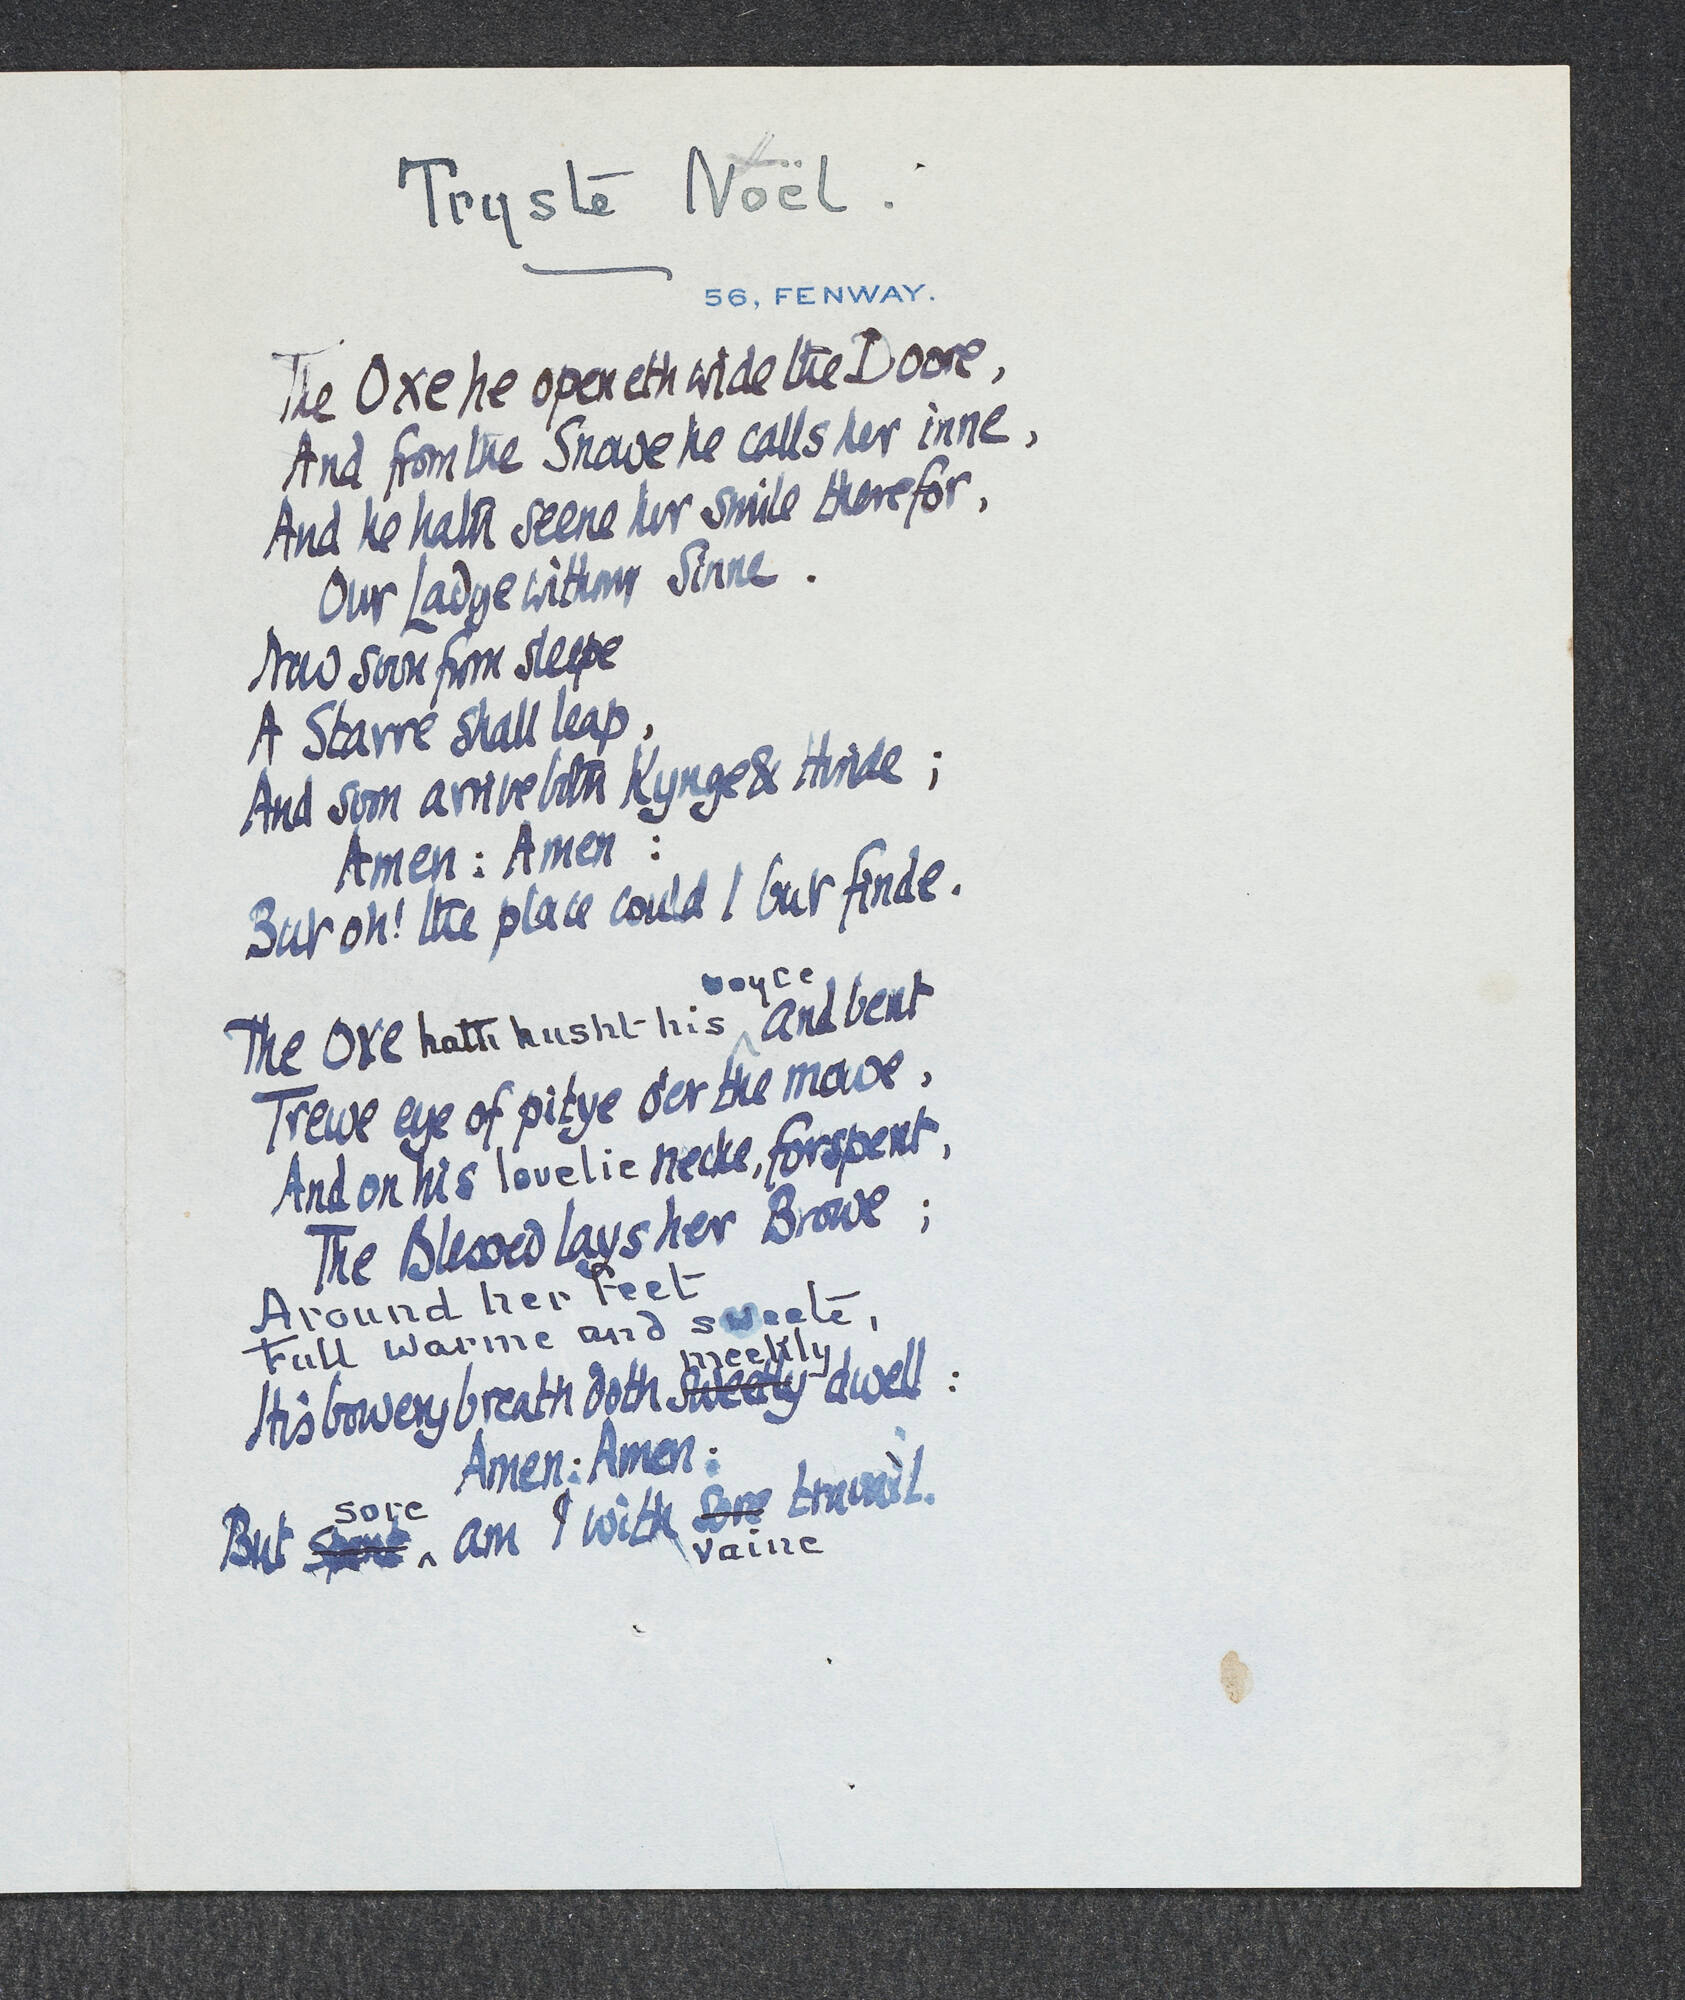 Trystē Noël.
56, FENWAY.
The Oxe he openeth wide the Doore,
And from the Snowe he calls her inne,
And he hath seene her smile therefor,
Our Ladye without Sinne.
Now soon from sleepe
A Starre shall leap,
And soon arrive both Kynge & Hinde;
Amen: Amen:
But oh! the place could I but finde.
The Oxe hath husht his voyce and bent
Trewe eye of pitye o'er the mowe,
And on his lovelie necke, forspent,
The Blessed lays her Browe;
Around her feet
Full warme and sweetē,
His bowery breath doth sweetly meekly dwell:
Amen: Amen:
But sore am I with sore vaine travail.